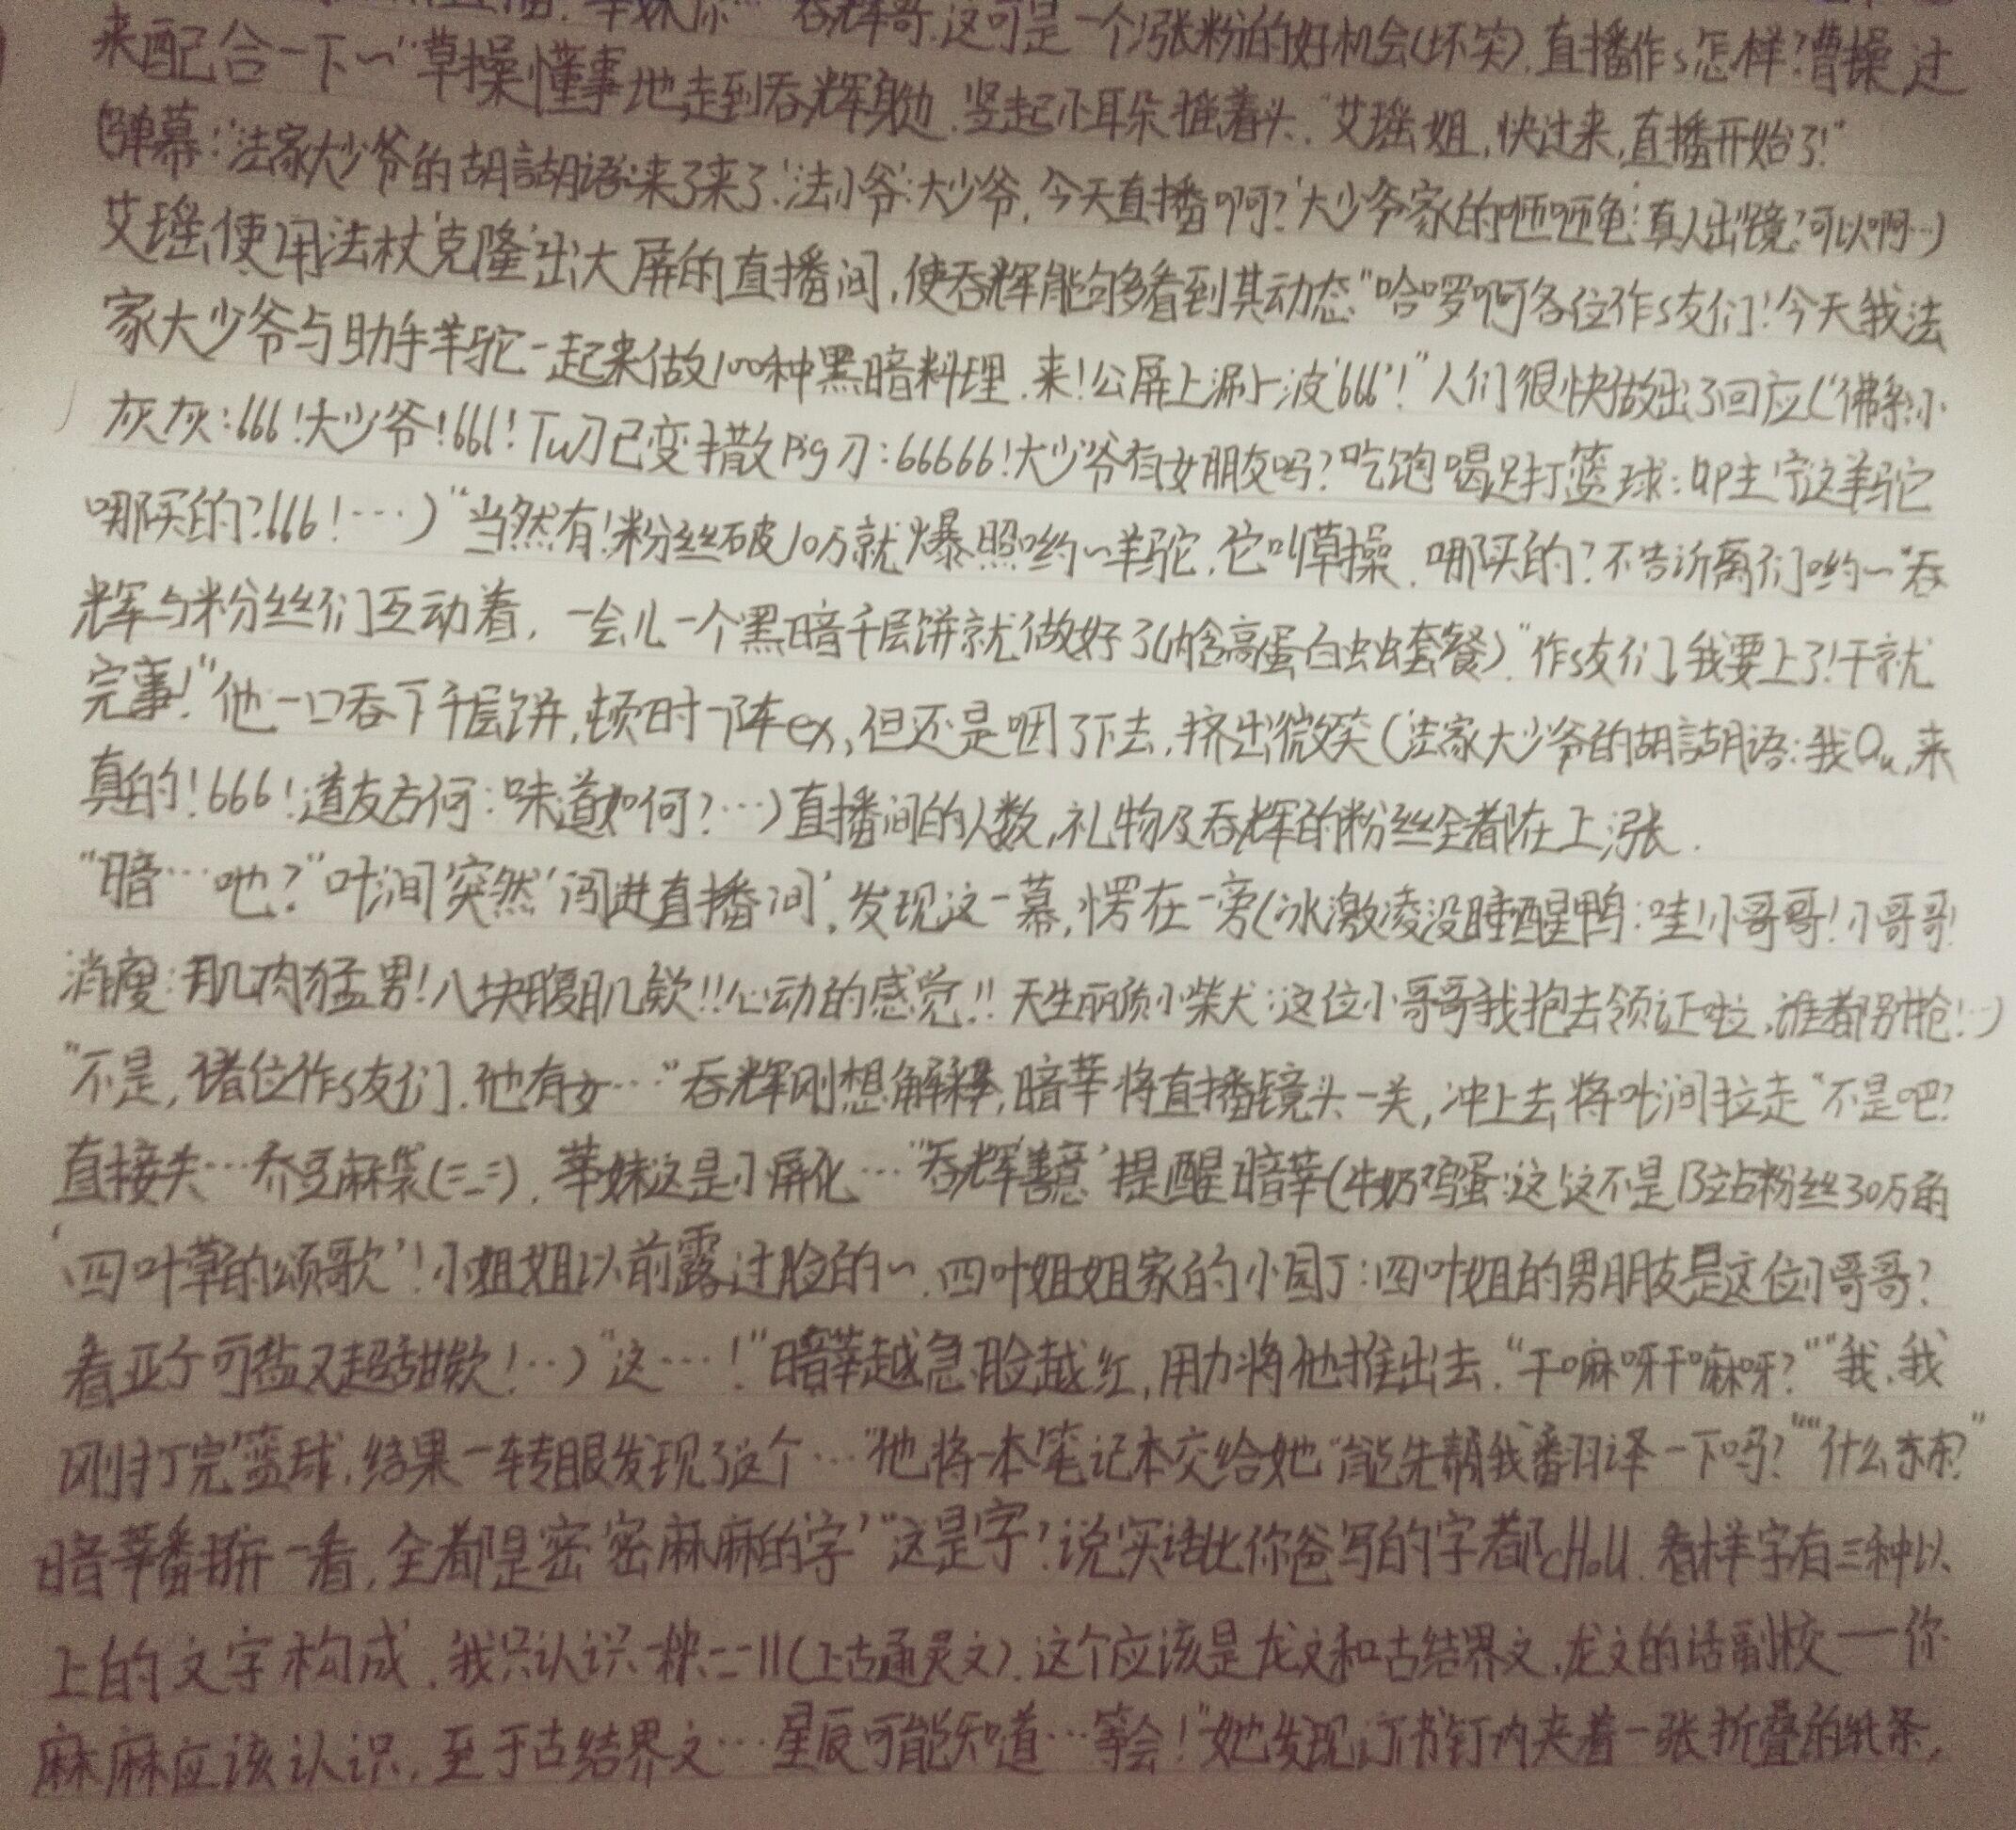 莘妹你…""吞辉哥,这可是一个涨粉的好机会(坏笑),直播作s怎样?曹操,过
来配合一下~"草操懂事地走到吞辉身边,竖起小耳朵摇着头."艾瑶姐,快过来,直播开始了!"
(弹幕:'法家大少爷的胡言胡语:来了来了.'法小爷':大少爷,今天直播啊?'大少爷家的咂咂兔':真人出镜?可以啊…)
艾瑶使用法杖'克隆'出大屏的直播间,使吞辉能够多看到其动态."哈啰啊各位作s友们!今天我法
家大少爷与助手羊驼一起来做100种黑暗料理.来!公屏上涮上波'666'!"人们很快做出了回应('佛系小
灰灰:666!大少爷!666!Tw刀已变撒Pig刀:66666!大少爷有女朋友吗?吃饱喝足打篮球:UP主家这羊驼
哪买的?666!…)"当然有!粉丝破10万就爆照哟~羊驼,它叫草操.哪买的?不告诉离们哟~"吞
辉与粉丝们互动着,一会儿一个黑暗千层饼就做好了(内含高蛋白虫虫套餐)."作s友们,我要上了!干就
完事!"他一口吞下千层饼,顿时一阵ex,但还是咽了下去,挤出微笑(法家大少爷的胡言胡语:我Qu,来
真的!666!道友方何:味道如何?…)直播间的人数,礼物及吞辉的粉丝全都在上涨.
"暗…吔?"叶涧突然'闯进直播间',发现这一幕,愣在一旁(冰激凌没睡醒鸭:哇!小哥哥!小哥哥!
消瘦:肌肉猛男!八块腹肌欸!!心动的感觉!!天生丽质小柴犬:这位小哥哥我抱去领证啦,谁都别抢!…)
"不是,诸位作s友们,他有女…"吞辉刚想解释,暗莘将直播镜头一关,冲上去将叶涧拉走"不是吧?
直接关…乔豆麻袋(=_=),莘妹这是小屏化…"吞辉'善意'提醒暗莘(牛奶鸡蛋:这!这不是B站粉丝30万的
'四叶草的颂歌'!小姐姐以前露过脸的~.四叶姐姐家的小园丁:四叶姐的男朋友是这位小哥哥?
看亚子可盐又超甜欸!…)"这…!"暗莘越急脸越红,用力将他推出去."干嘛呀干嘛呀?""我,我
刚打完篮球,结果一转眼发现了这个…"他将一本笔记本交给她"能先帮我翻译一下吗?""什么东东?"
暗莘翻开一看,全都是密密麻麻的'字'"这是字?说实话比你爸写的字都cHoU.看样字有三种以
上的文字构成,我只认识一种二||(上古通灵文).这个应该是龙文和古结界文,龙文的话副校——你
麻麻应该认识,至于古结界文…星辰可能知道…等会!"她发现订书钉内夹着一张折叠的纸条,